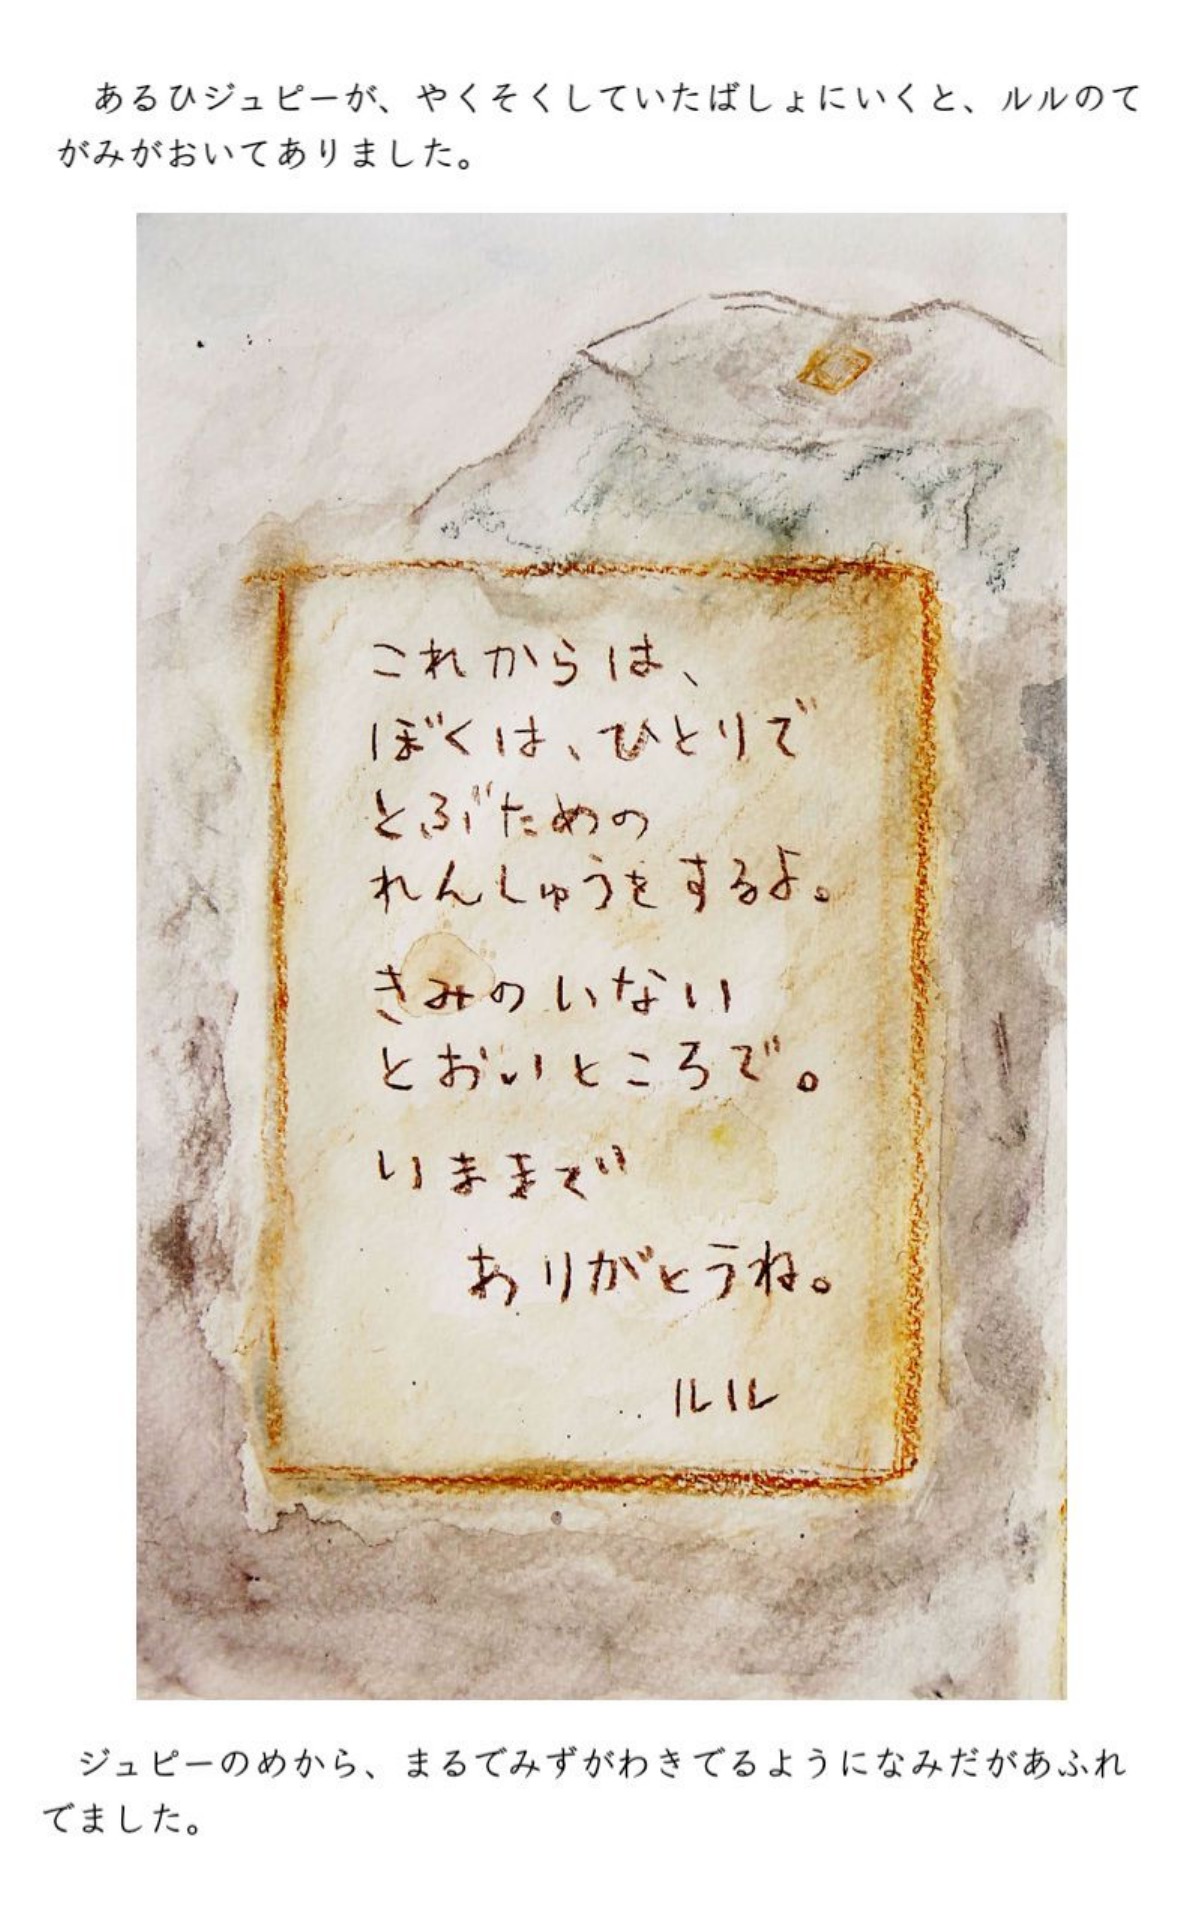 あるひジュピーが、やくそくしていたばしょにいくと、ルルのて
がみがおいてありました。
これからは、
ぼくは、ひとりで
とぶための
れんしゅうをするよ。
きみのいない
とおいところで。
いままで
ありがとうね。
ルル
ジュピーのめから、まるでみずがわきでるようになみだがあふれ
でました。